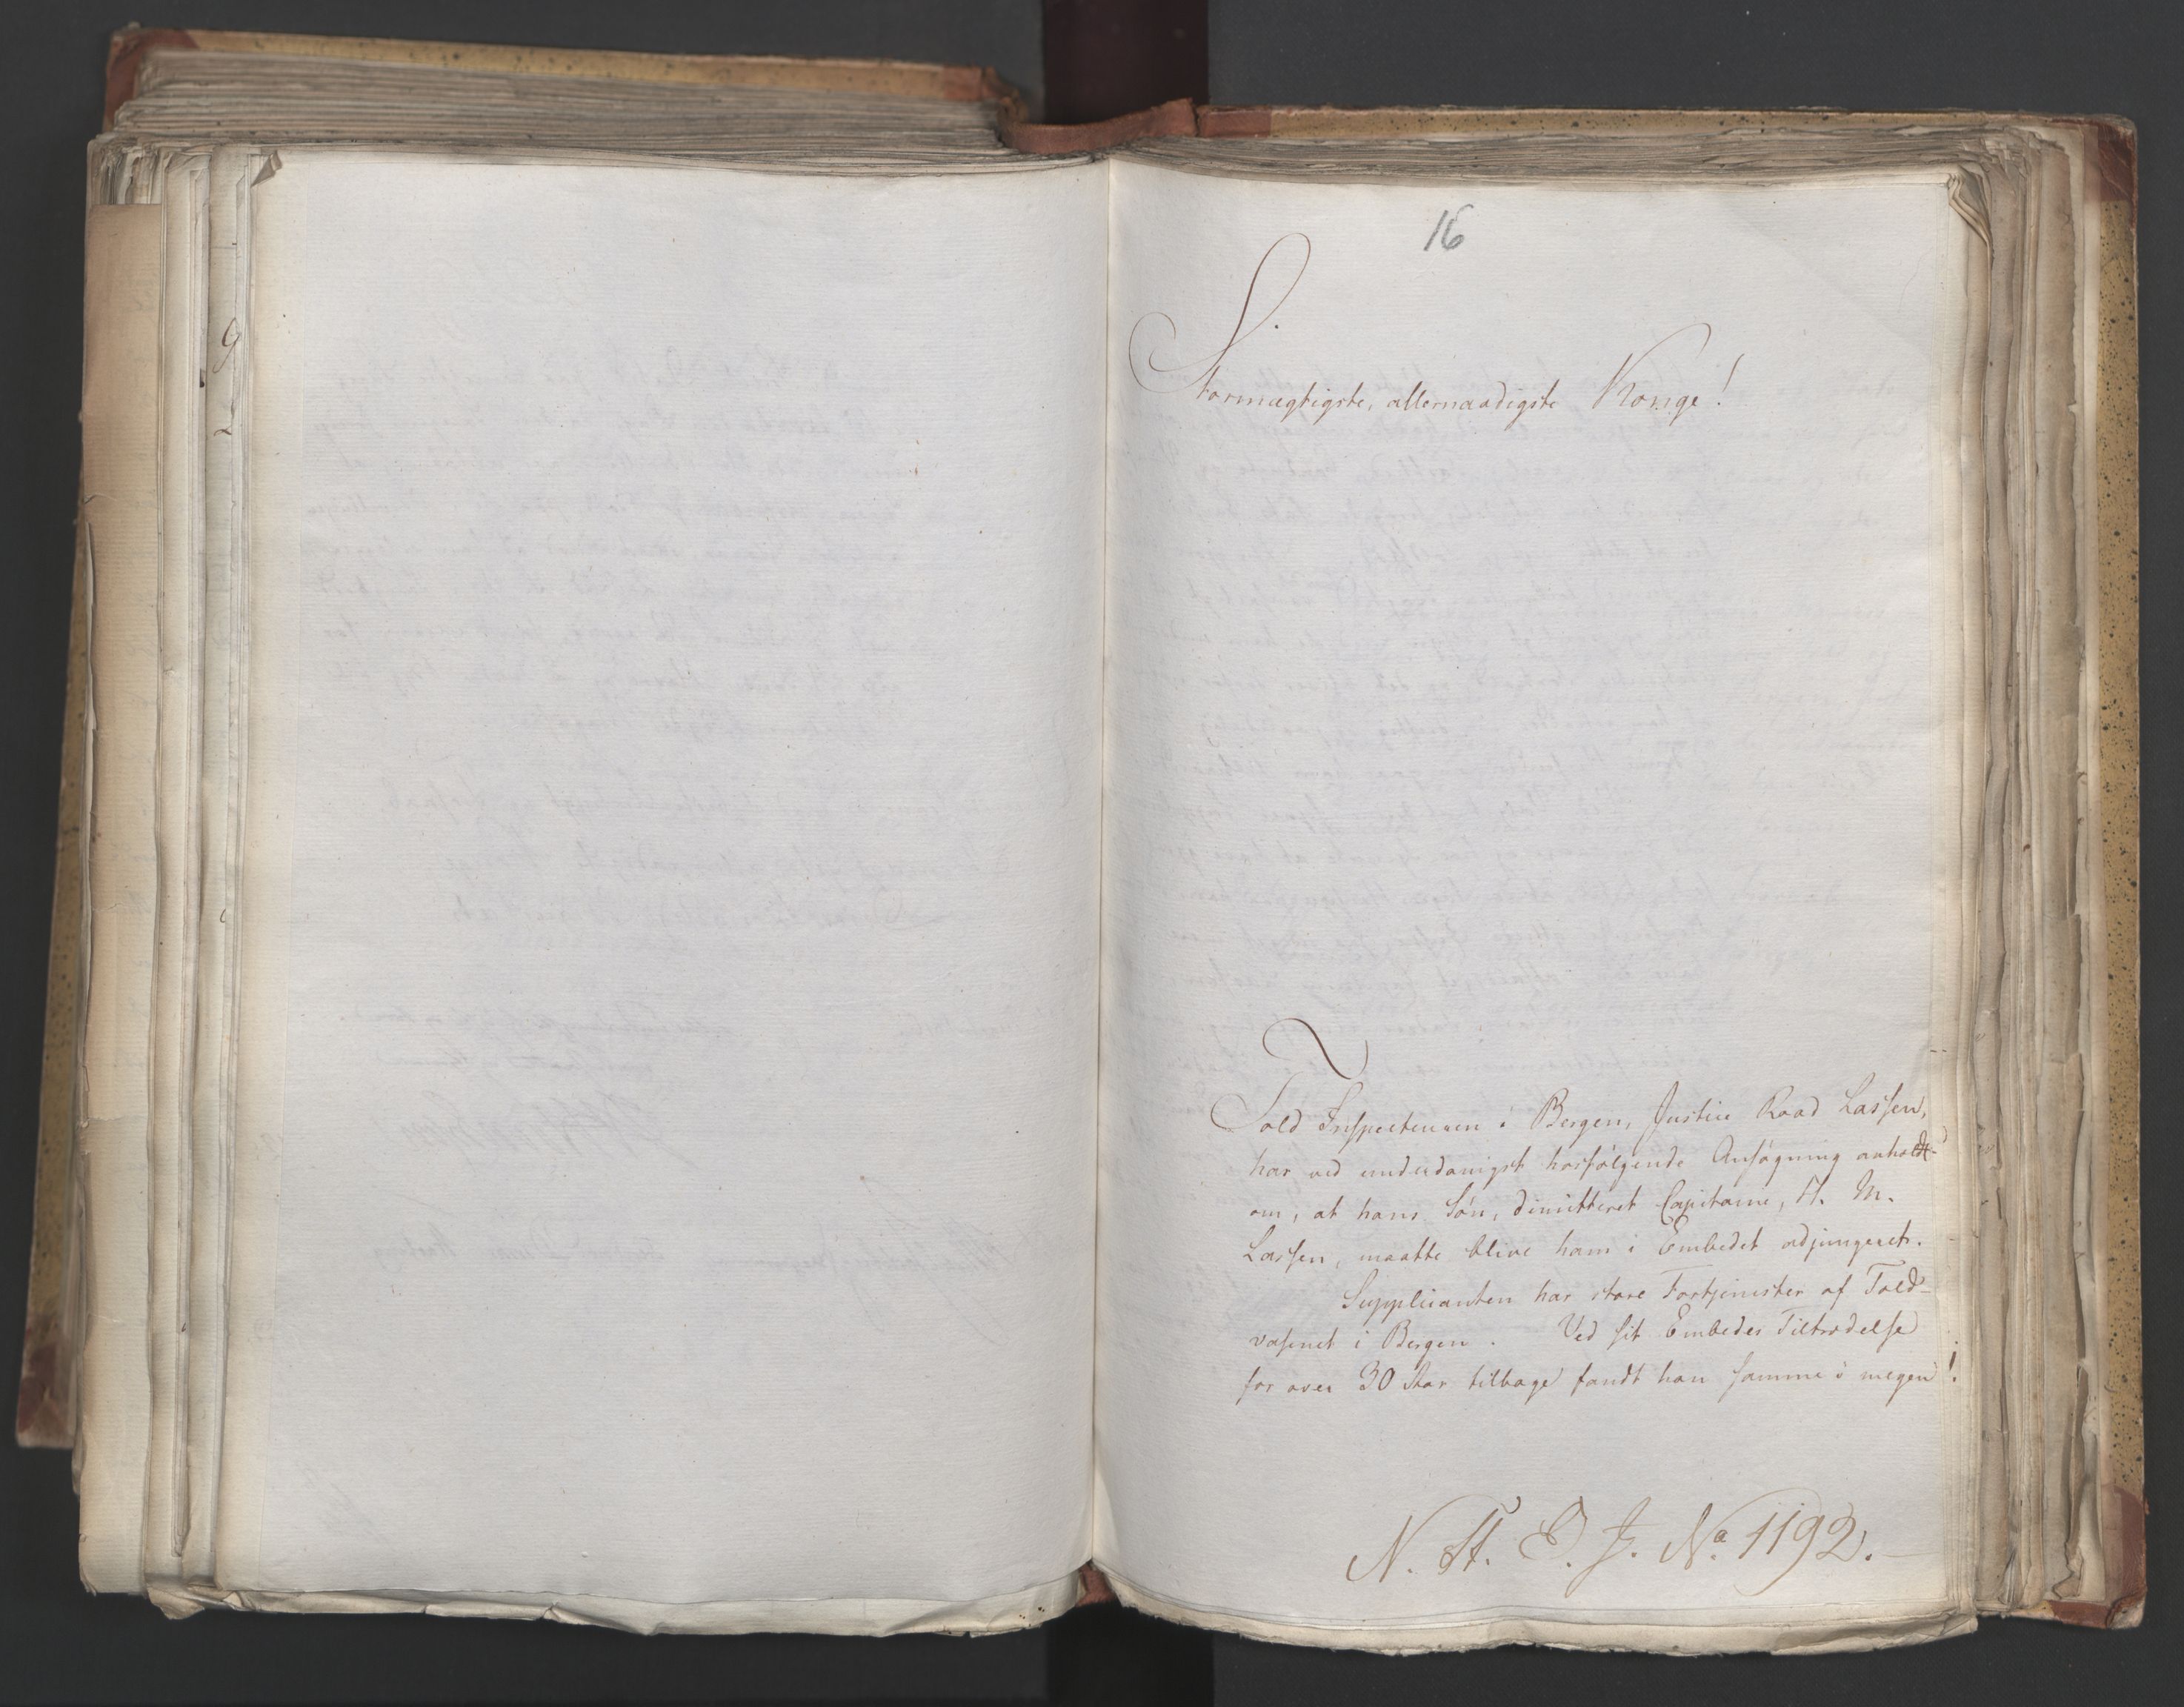 16
Stormægtigste, allernaadigste Konge!
Told Inspecteuren i Bergen, Justice Raad Lassen,
har ved underdanigst hosfølgende Ansøgning anholdt
om, at hans Søn, dimitteret Capitaine, H. M.
Lassen, maatte blive ham i Embedet adjungeret.
Supplicanten har store Fortjenester af Told-
væsenet i Bergen. Ved sit Embedes Tiltrædelse
for over 30 Aar tilbage fandt han samme i megen
N. H. E. J. No. 1192.